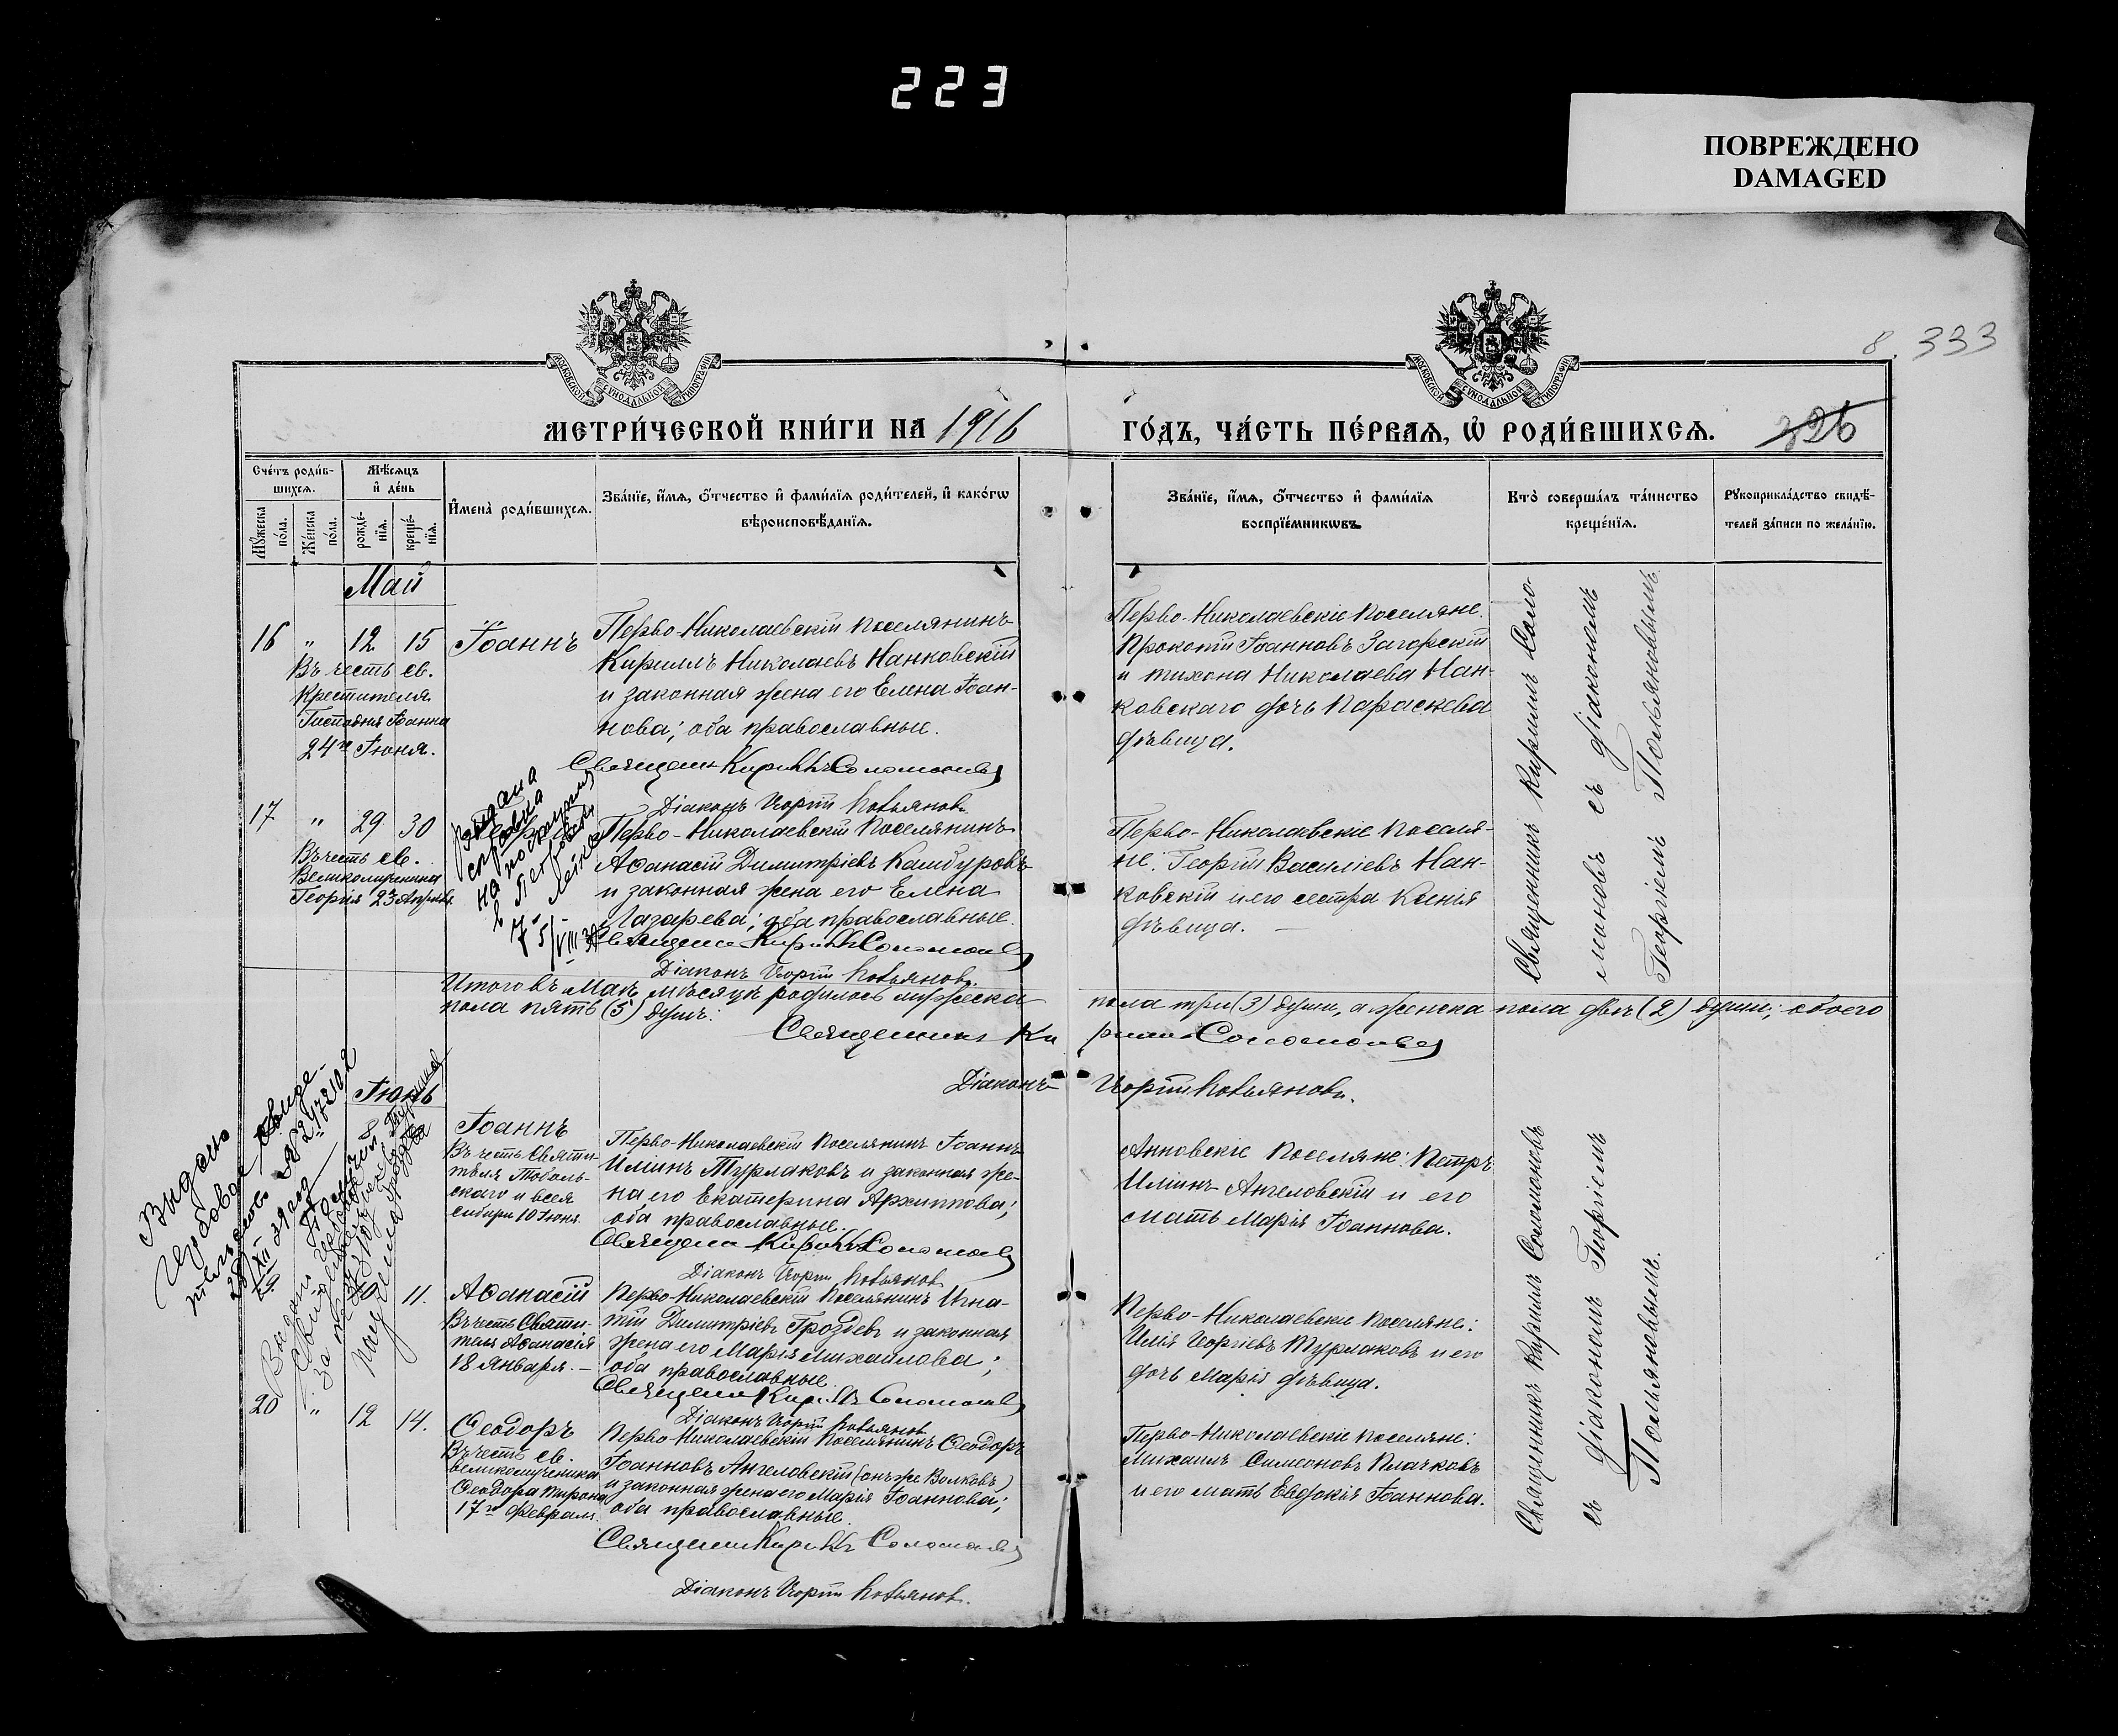 223
ПОВРЕЖДЕНО
DAMAGED
8. 333
МОСКОВСКОЙ СѴНОДАЛЬНОЙ ТИПОГРАФІИ
МОСКОВСКОЙ СѴНОДАЛЬНОЙ ТИПОГРАФІИ
МЕТРИ́ЧЕСКОЙ КНИ́ГИ НА 1916 ГО́ДЪ, ЧА́СТЬ ПЕ́РВАѦ, Ѡ҆ РОДИ́ВШИХСѦ. 326
Сче́тъ роди́в-
шихсѧ.
Мѣ́сѧцъ
и҆ де́нь
Мꙋ́жеска по́ла.
Же́нска по́ла.
рожде́-
нїѧ.
креще́-
нїѧ.
И҆мена̀ роди́вшихсѧ.
Зва́нїе, и҆́мѧ, ѻ҆́тчество и҆ фами́лїѧ роди́телей, и҆ како́гѡ
вѣроисповѣ́данїѧ.
Зва́нїе, и҆́мѧ, ѻ҆́тчество и҆ фами́лїѧ
воспрїе́мникѡвъ.
Кто̀ соверша́лъ та́инство
креще́нїѧ.
Рꙋкоприкла́дство свидѣ́-
телей за́писи по жела́нїю.
Май
16 " 12 15 Іоаннъ
Въ честь св.
Крестителя
Господня Іоанна
24го Іюня.
Перво-Николаевскій поселянинъ
Кириллъ Николаевъ Нанковскій
и законная жена его Елена Іоан-
нова; оба православные.
Священ Кириллъ Соломоновъ
Діаконъ Георгій Повьянов
Перво-Николаевскіе поселяне
Прокопій Іоанновъ Загорскій
и Тихона Николаева Нан-
ковскаго дочь Параскева
дѣвица.
Священникъ Кириллъ Соло-
моновъ съ діакономъ
Георгіемъ
17 " 29 30
Въ честь св.
Великомученика
Георгія 23 Апрѣля
Выдана
справка
на
Перво-Николаевскій поселянинъ
Аѳанасій Димитріевъ Камбуровъ
и законная жена его Елена
Лазарева; оба православные.
Священ Кириллъ Соломоновъ
Діаконъ Георгій Повьянов.
Перво-Николаевскіе поселя-
не: Георгій Василіевъ Нан-
ковскій и его сестра Ксенія
дѣвица.
Итого въ Маѣ мѣсяцѣ родилось мужеска пола три (3) души, а женска пола двѣ (2) души; обоего
пола пять (5) душъ.
Священникъ Кириллъ Соломоновъ
Діаконъ Георгій Повьянов.
Выдано
№ 217210,2
28/XII
Іюнь
8
Іоаннъ
Въ честь Святи-
теля Тоболь-
скаго и всея
Сибири 10 Іюня
Перво-Николаевскій поселянинъ Іоаннъ
Иліинъ Турлаковъ и законная же-
на его Екатерина Архиппова;
оба православные.
Священ Кириллъ Соломоновъ
Діаконъ Георгій Повьянов
Анновскіе поселяне: Петръ
Иліинъ Ангеловскій и его
мать Марія Іоаннова.
Священникъ Кириллъ Соломоновъ
съ діакономъ Георгіемъ
11. Аѳанасій
Въ честь Святи-
теля Аѳанасія
18 Января. —
Перво-Николаевскій поселянинъ Игна-
тій Димитріевъ Гроздевъ и законная
жена его Марія Михаилова;
оба православные
Священ Кириллъ Соломоновъ
Діаконъ Георгій Повьянов
Перво-Николаевскіе поселяне:
Илія Георгіевъ Турлаковъ и его
дочь Марія дѣвица.
20 " 12 14. Ѳеодоръ
Въ честь св.
великомученика
Ѳеодора Тирона
17го Февраля.
Перво-Николаевскій поселянинъ Ѳеодоръ
Іоанновъ Ангеловскій (онъ же Волковъ)
и законная жена его Марія Іоаннова;
оба православные.
Священ Кириллъ Соломоновъ
Діаконъ Георгій Повьянов.
Перво-Николаевскіе поселяне:
Михаилъ Симеоновъ Плачковъ
и его мать Евдокія Іоаннова.